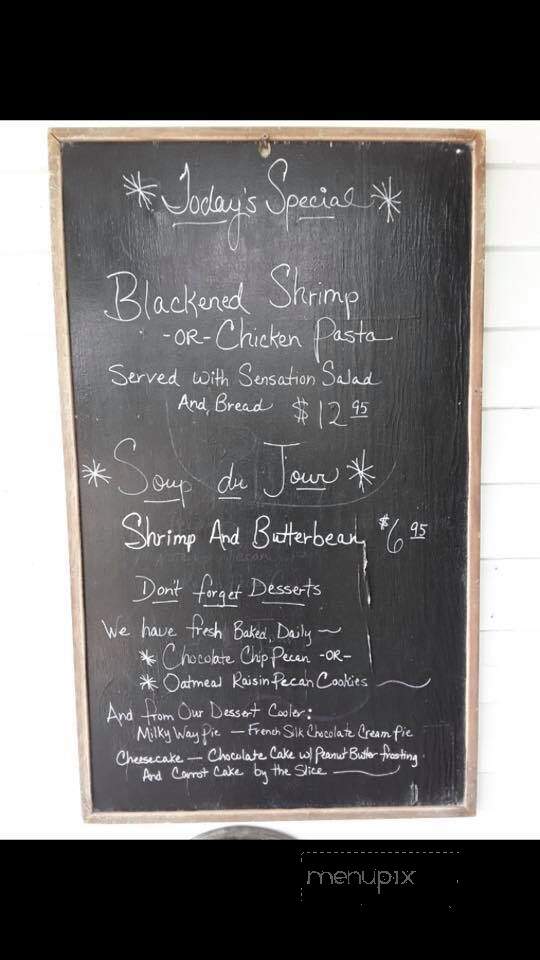 * Today's Special *
Blackened Shrimp
-OR- Chicken Pasta
Served with Sensation Salad
And Bread $12 95
* Soup du Jour *
Shrimp And Butterbean $6 95
Don't forget Desserts
We have fresh Baked Daily ~
* Chocolate Chip Pecan -OR-
* Oatmeal Raisin Pecan Cookies
And from Our Dessert Cooler:
Milky Way Pie — French Silk Chocolate Cream Pie
Cheesecake — Chocolate Cake w/ Peanut Butter frosting
And Carrot Cake by the Slice
menupix